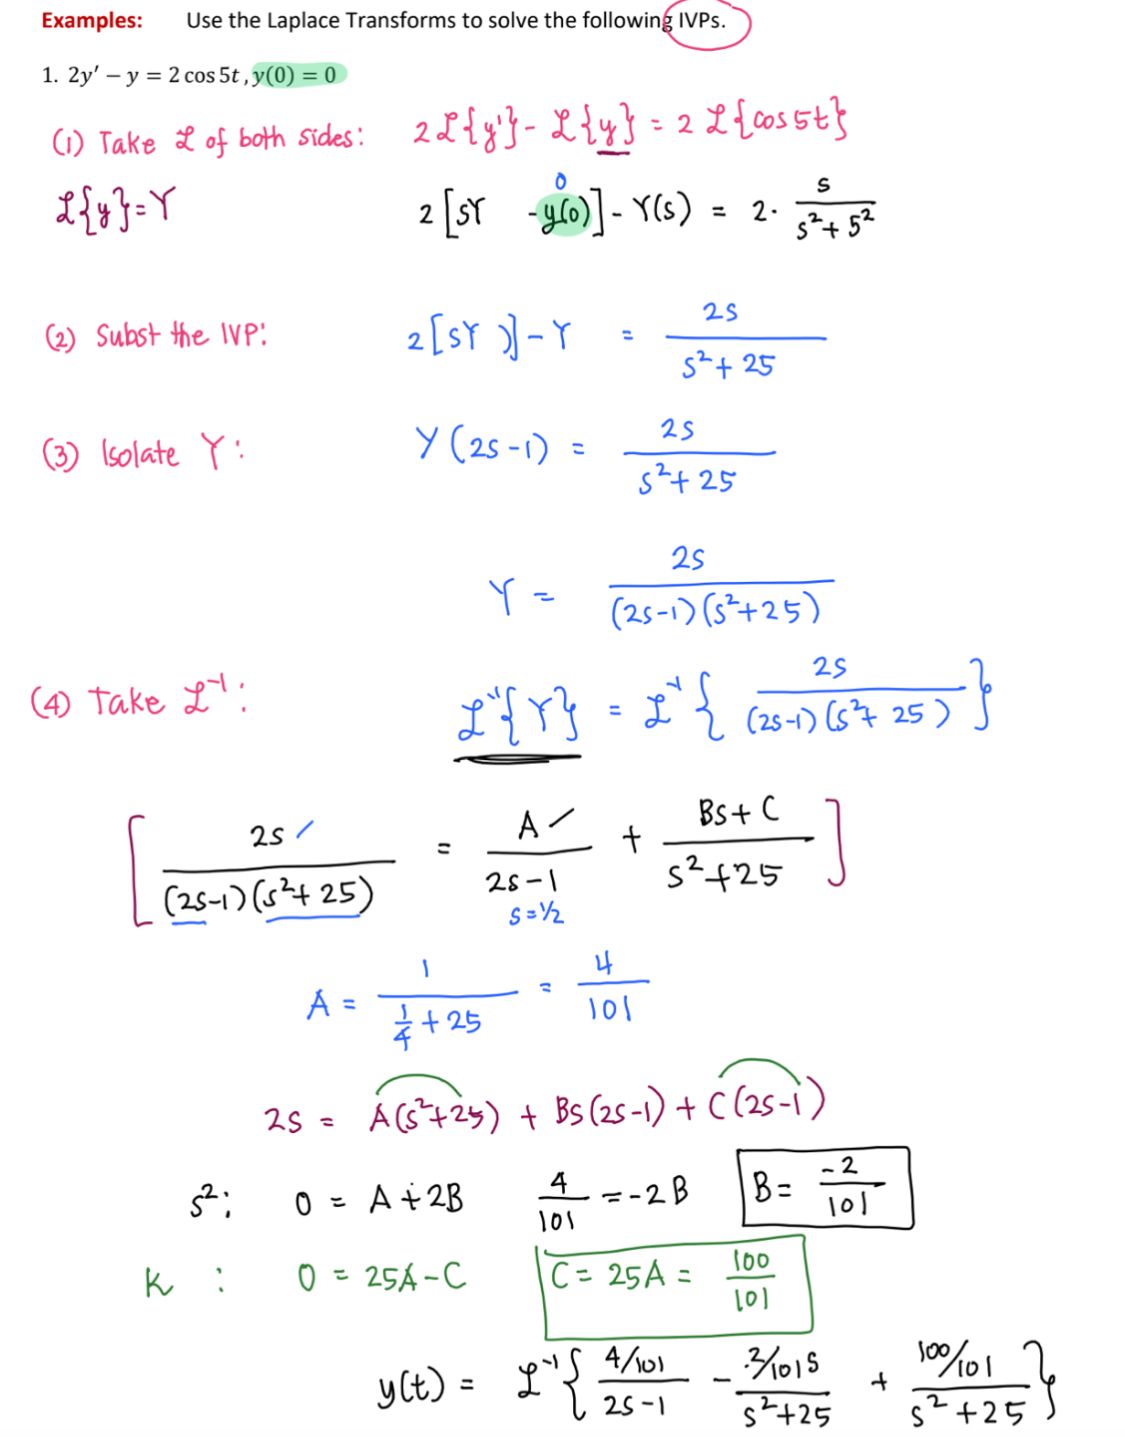 Examples: Use the Laplace Transforms to solve the following IVPs.
1. 2y′ − y = 2 cos 5t , y(0) = 0
(1) Take ℒ of both sides: 2ℒ{y'} - ℒ{y} = 2 ℒ{cos5t}
0
ℒ{y}=Y 2[sY -y(0)] - Y(s) = 2· s/(s²+5²)
(2) Subst the IVP: 2[sY )] - Y = 2s/(s²+25)
(3) Isolate Y: Y(2s-1) = 2s/(s²+25)
Y = 2s/((2s-1)(s²+25))
(4) Take ℒ⁻¹: ℒ⁻¹{Y} = ℒ⁻¹{ 2s/((2s-1)(s²+25)) }
[ 2s/((2s-1)(s²+25)) = A/(2s-1) + (Bs+C)/(s²+25) ]
s=1/2
A = 1/(1/4+25) = 4/101
2s = A(s²+25) + Bs(2s-1) + C(2s-1)
s²: 0 = A+2B 4/101 = -2B B = -2/101
K : 0 = 25A-C C = 25A = 100/101
y(t) = ℒ⁻¹{ (4/101)/(2s-1) - (2/101 s)/(s²+25) + (100/101)/(s²+25) }